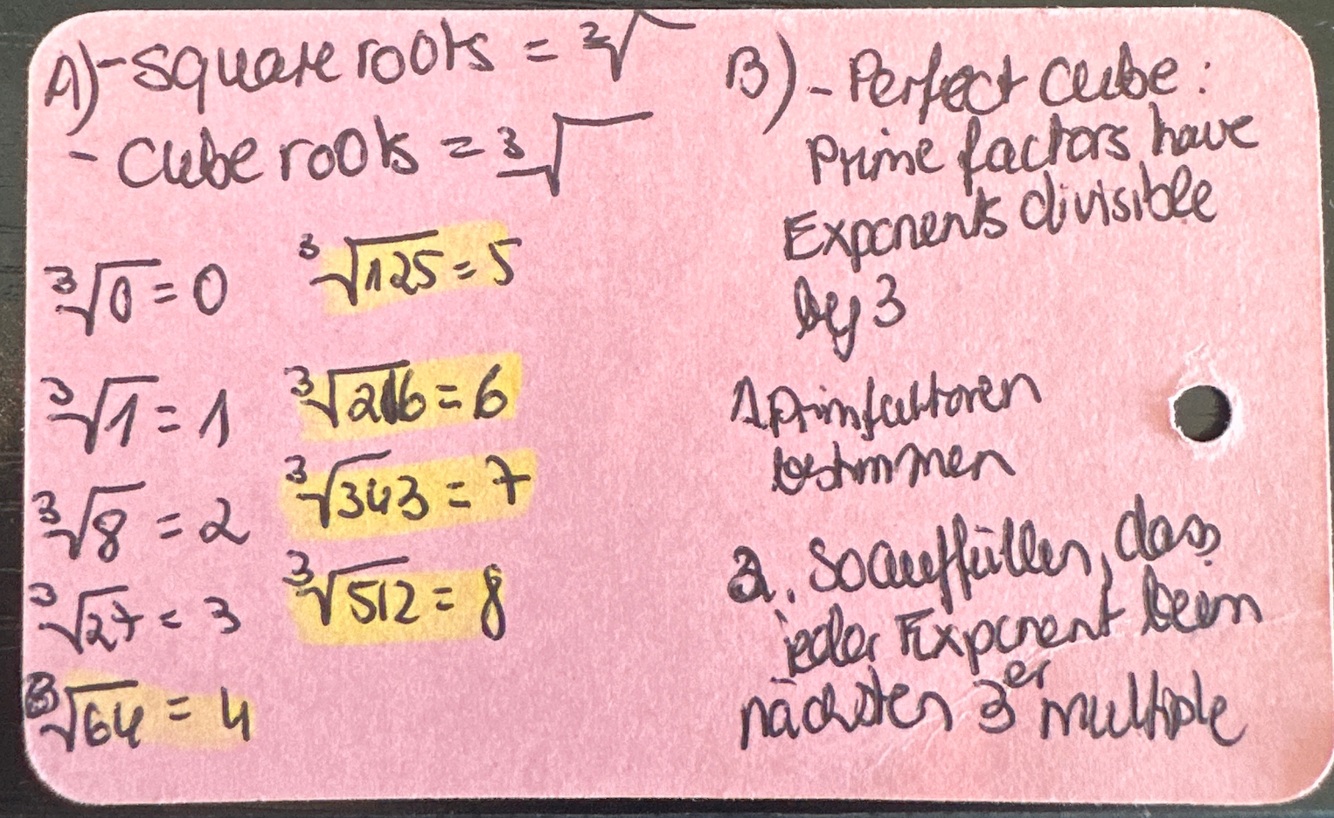 A) - square roots = ²√
- cube roots = ³√
³√0 = 0
³√1 = 1
³√8 = 2
³√27 = 3
³√64 = 4
³√125 = 5
³√216 = 6
³√343 = 7
³√512 = 8
B) - Perfect cube:
Prime factors have
Exponents divisible
by 3
1. Primfaktoren
bestimmen
2. So auffüllen, dass
jeder Exponent beim
nächsten 3er multiple